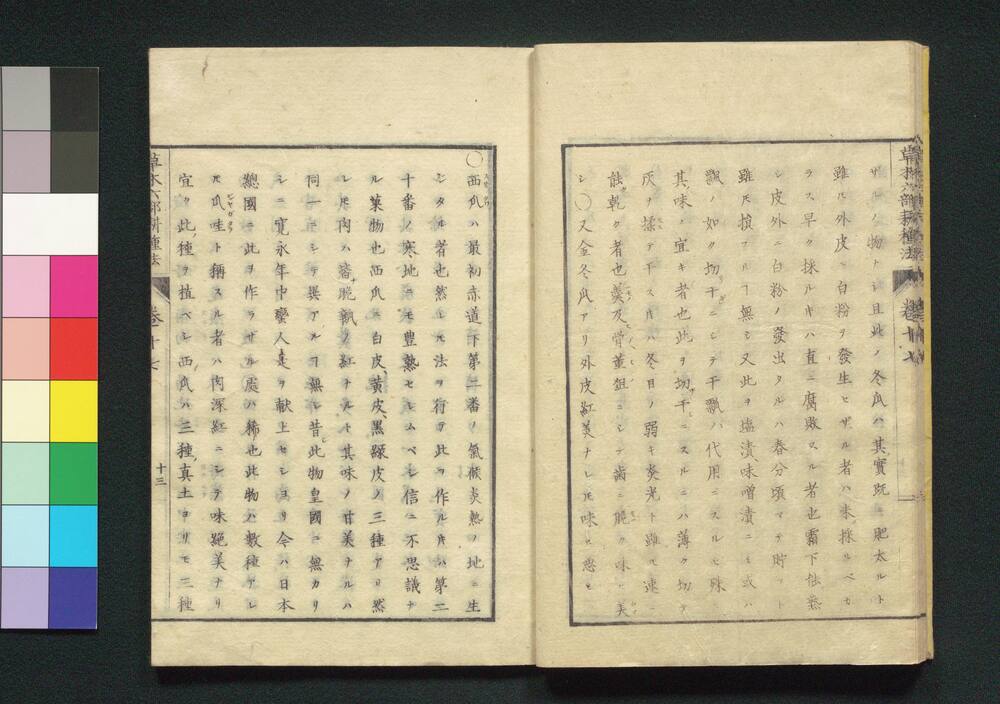 草木六部耕種法 巻十七
ザルノ物トシ且此ノ冬瓜ハ其實既ニ肥太ルト
雖ㇳモ外皮ニ白粉ヲ發生セザル者ハ未採ルベカ
ラス早ク採ルキハ直ニ腐敗スル者也霜下佳熟
シ皮外ニ白粉ノ發出タルハ春分頃マデ貯ト
雖ㇳモ損フルヿ無シ又此ヲ塩漬味噌漬ニシ或ハ
瓢ノ如ク切干ニシテ干瓢ノ代用ニスルモ殊
其味ノ宜キ者也此ヲ切干ニスルニハ薄ク切テ
灰ヲ揉テ干スキハ冬日ノ弱キ炎光ト雖モ速ニ
能乾ク者也羹及骨董
シテ歯ニ脆ク味ヒ美
シ〇又金冬瓜アリ外皮紅美ナレㇳモ味ヒ惡シ
〇西瓜ハ最初赤道下第二番ノ氣候炎熱ノ地ニ生
シタル者也然レㇳモ法ヲ行テ此ヲ作ルキハ第二
十番ノ寒地ニモ豊熟セシムベシ信ニ不思議ナ
ル菓物也西瓜ニ白皮黄皮黒緑皮ノ三種アリ然
レㇳモ肉ハ蕃脆瓤ノ紅ナルㇳモ其味ノ甘美ナルハ
同一ニシテ異アルヿ無シ昔ハ此物皇國ニ無カリ
シニ寛永年中蠻人是ヲ献上セシヨリ今ハ日本
總國ニ此ヲ作ラザル處ハ稀也此物ハ數種アレ
ㇳモ爪哇ト稱スル者ハ肉深紅ニシテ味絶美ナリ
宜ク此種ヲ植ベシ西瓜ハ三種真土ヨリモ三種
草木六部耕種法 巻十七 十三